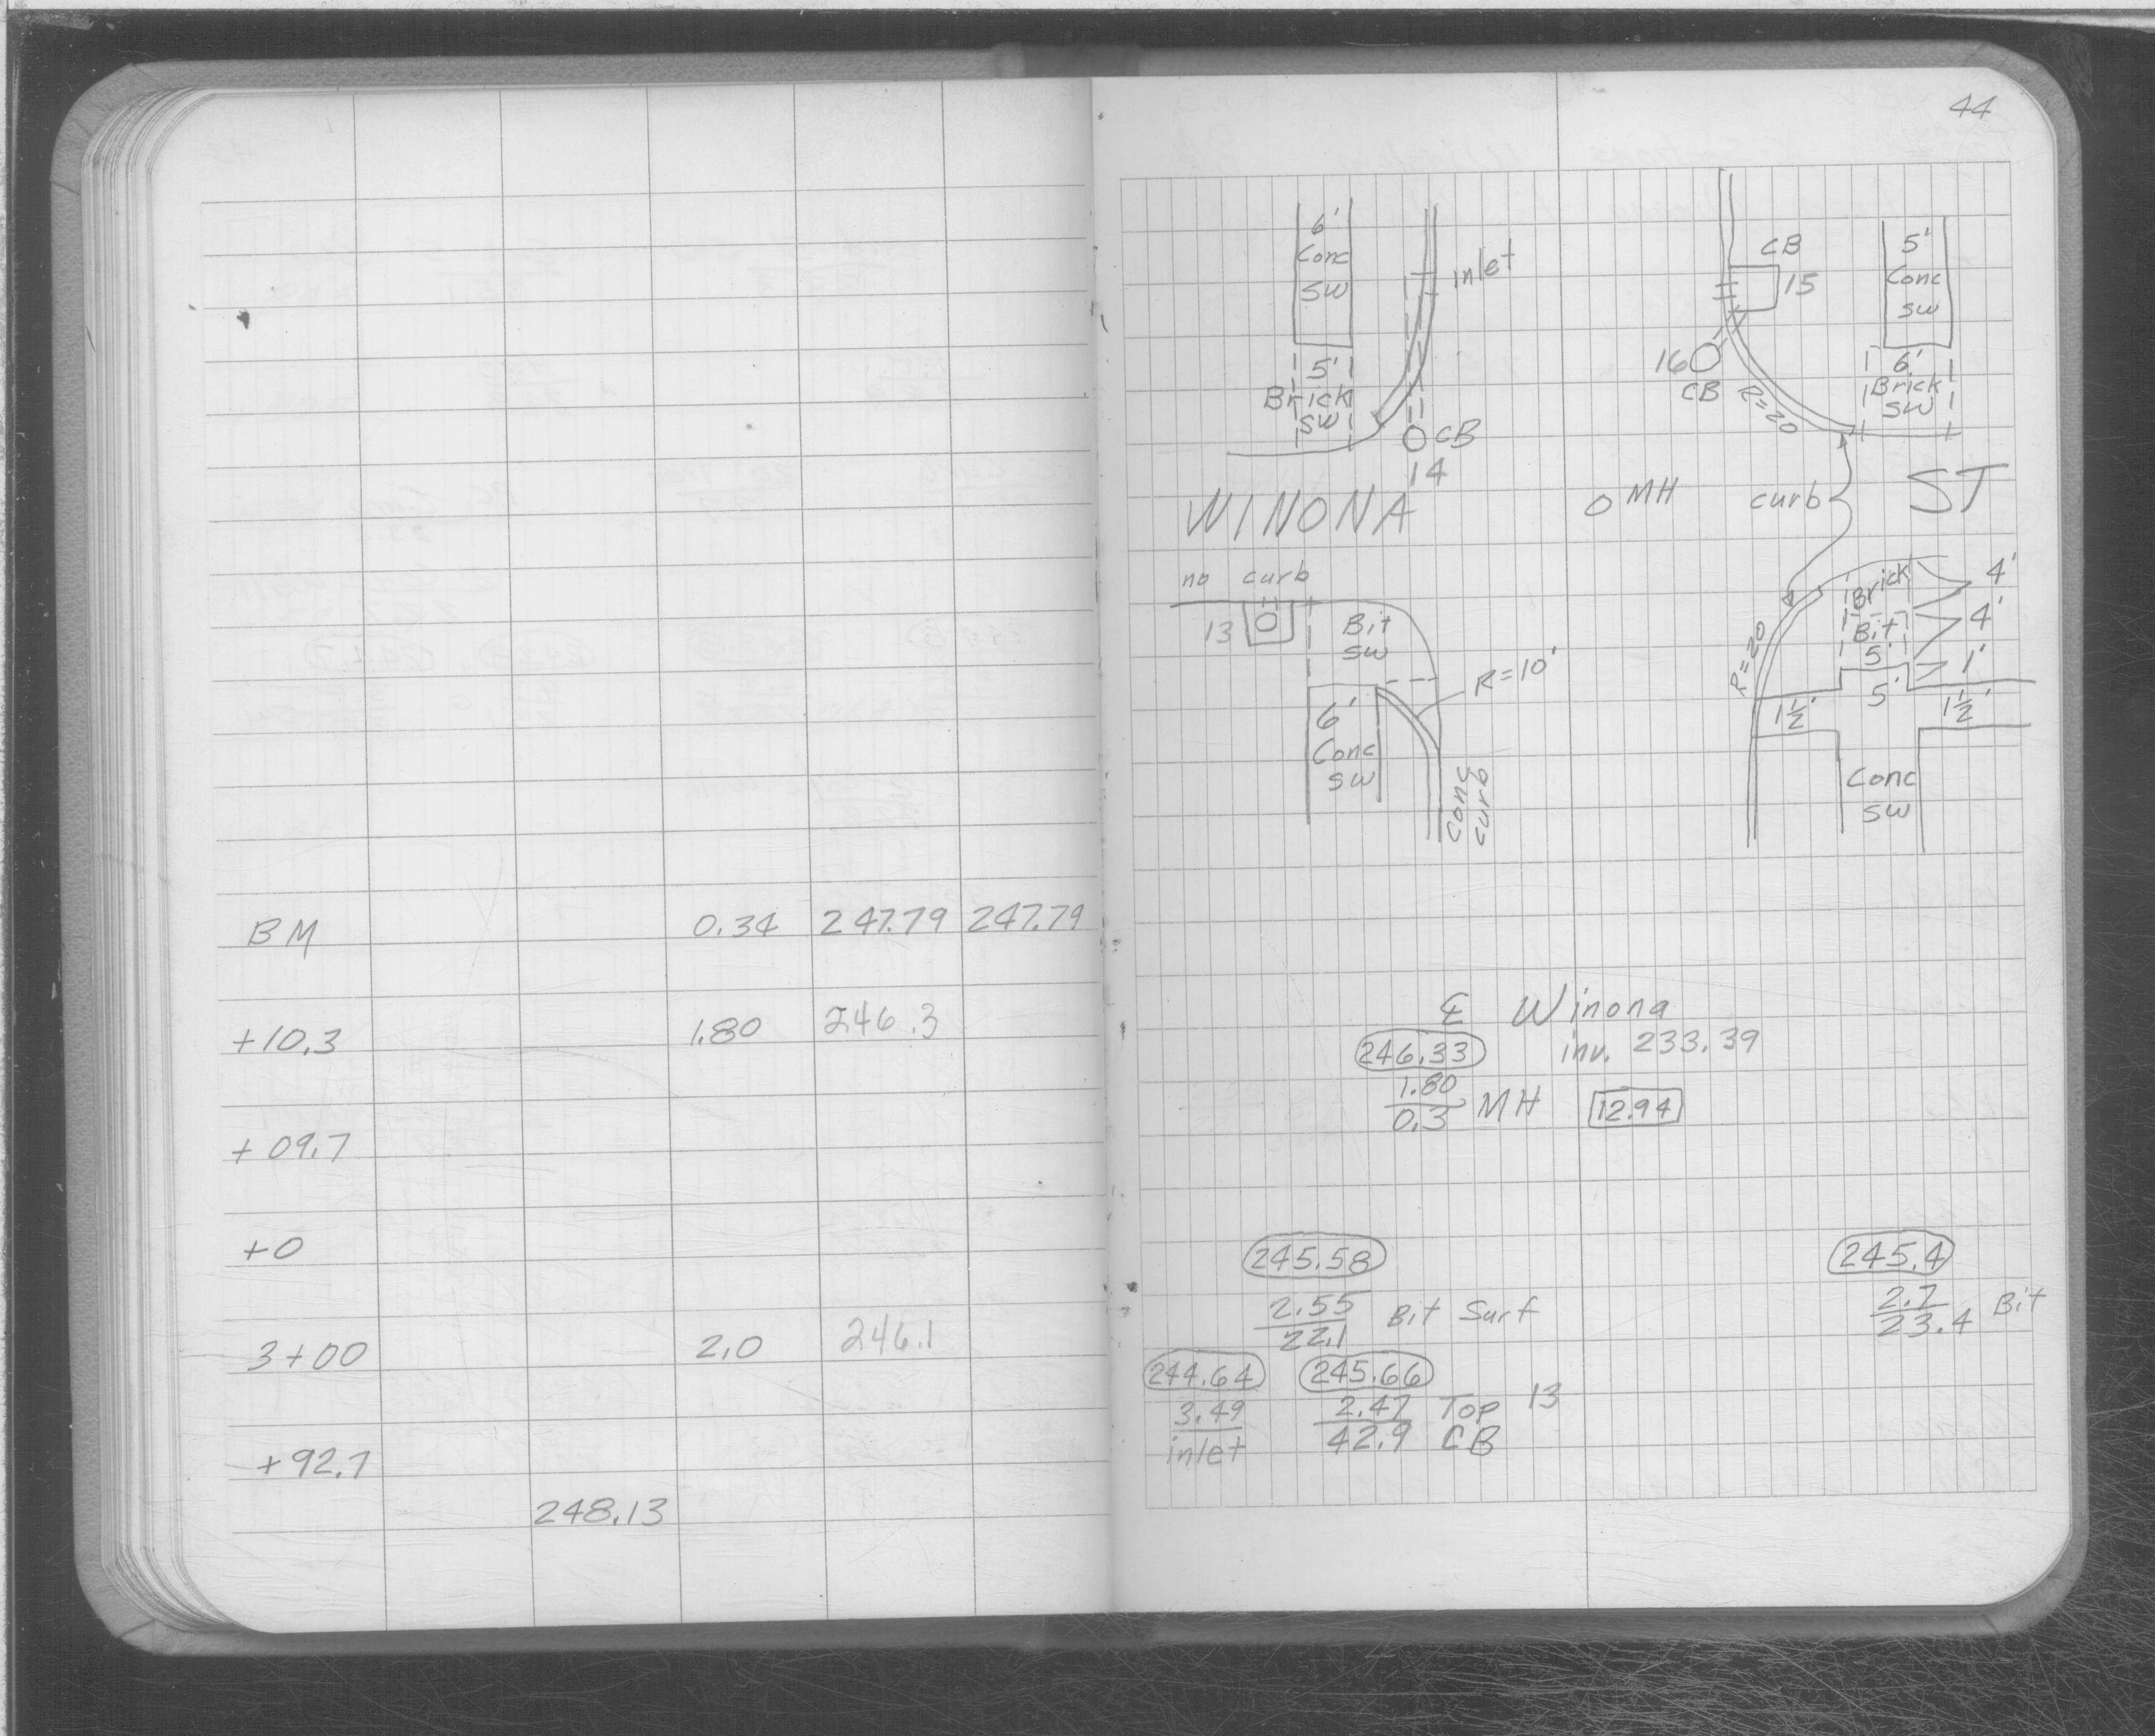 BM 0.34 247.79 247.79
+10.3 1.80 246.3
+09.7
+0
3+00 2.0 246.1
+92.7
248.13
44
6'
Conc
SW
5'
Brick
SW
inlet
CB
14
CB
15
16
CB
R=20
5'
Conc
SW
6'
Brick
SW
WINONA
MH
curb
ST
no curb
13
Bit
SW
R=10'
6'
Conc
SW
Conc
curb
R=20
Brick
Bit
5'
5'
4'
4'
1'
1½'
1½'
Conc
SW
℄ Winona
246.33 inv. 233.39
1.80
0.3 MH 12.94
245.58 245.4
2.55 Bit Surf 2.7 Bit
22.1 23.4
244.64 245.66
3.49 2.47 Top 13
inlet 42.9 CB